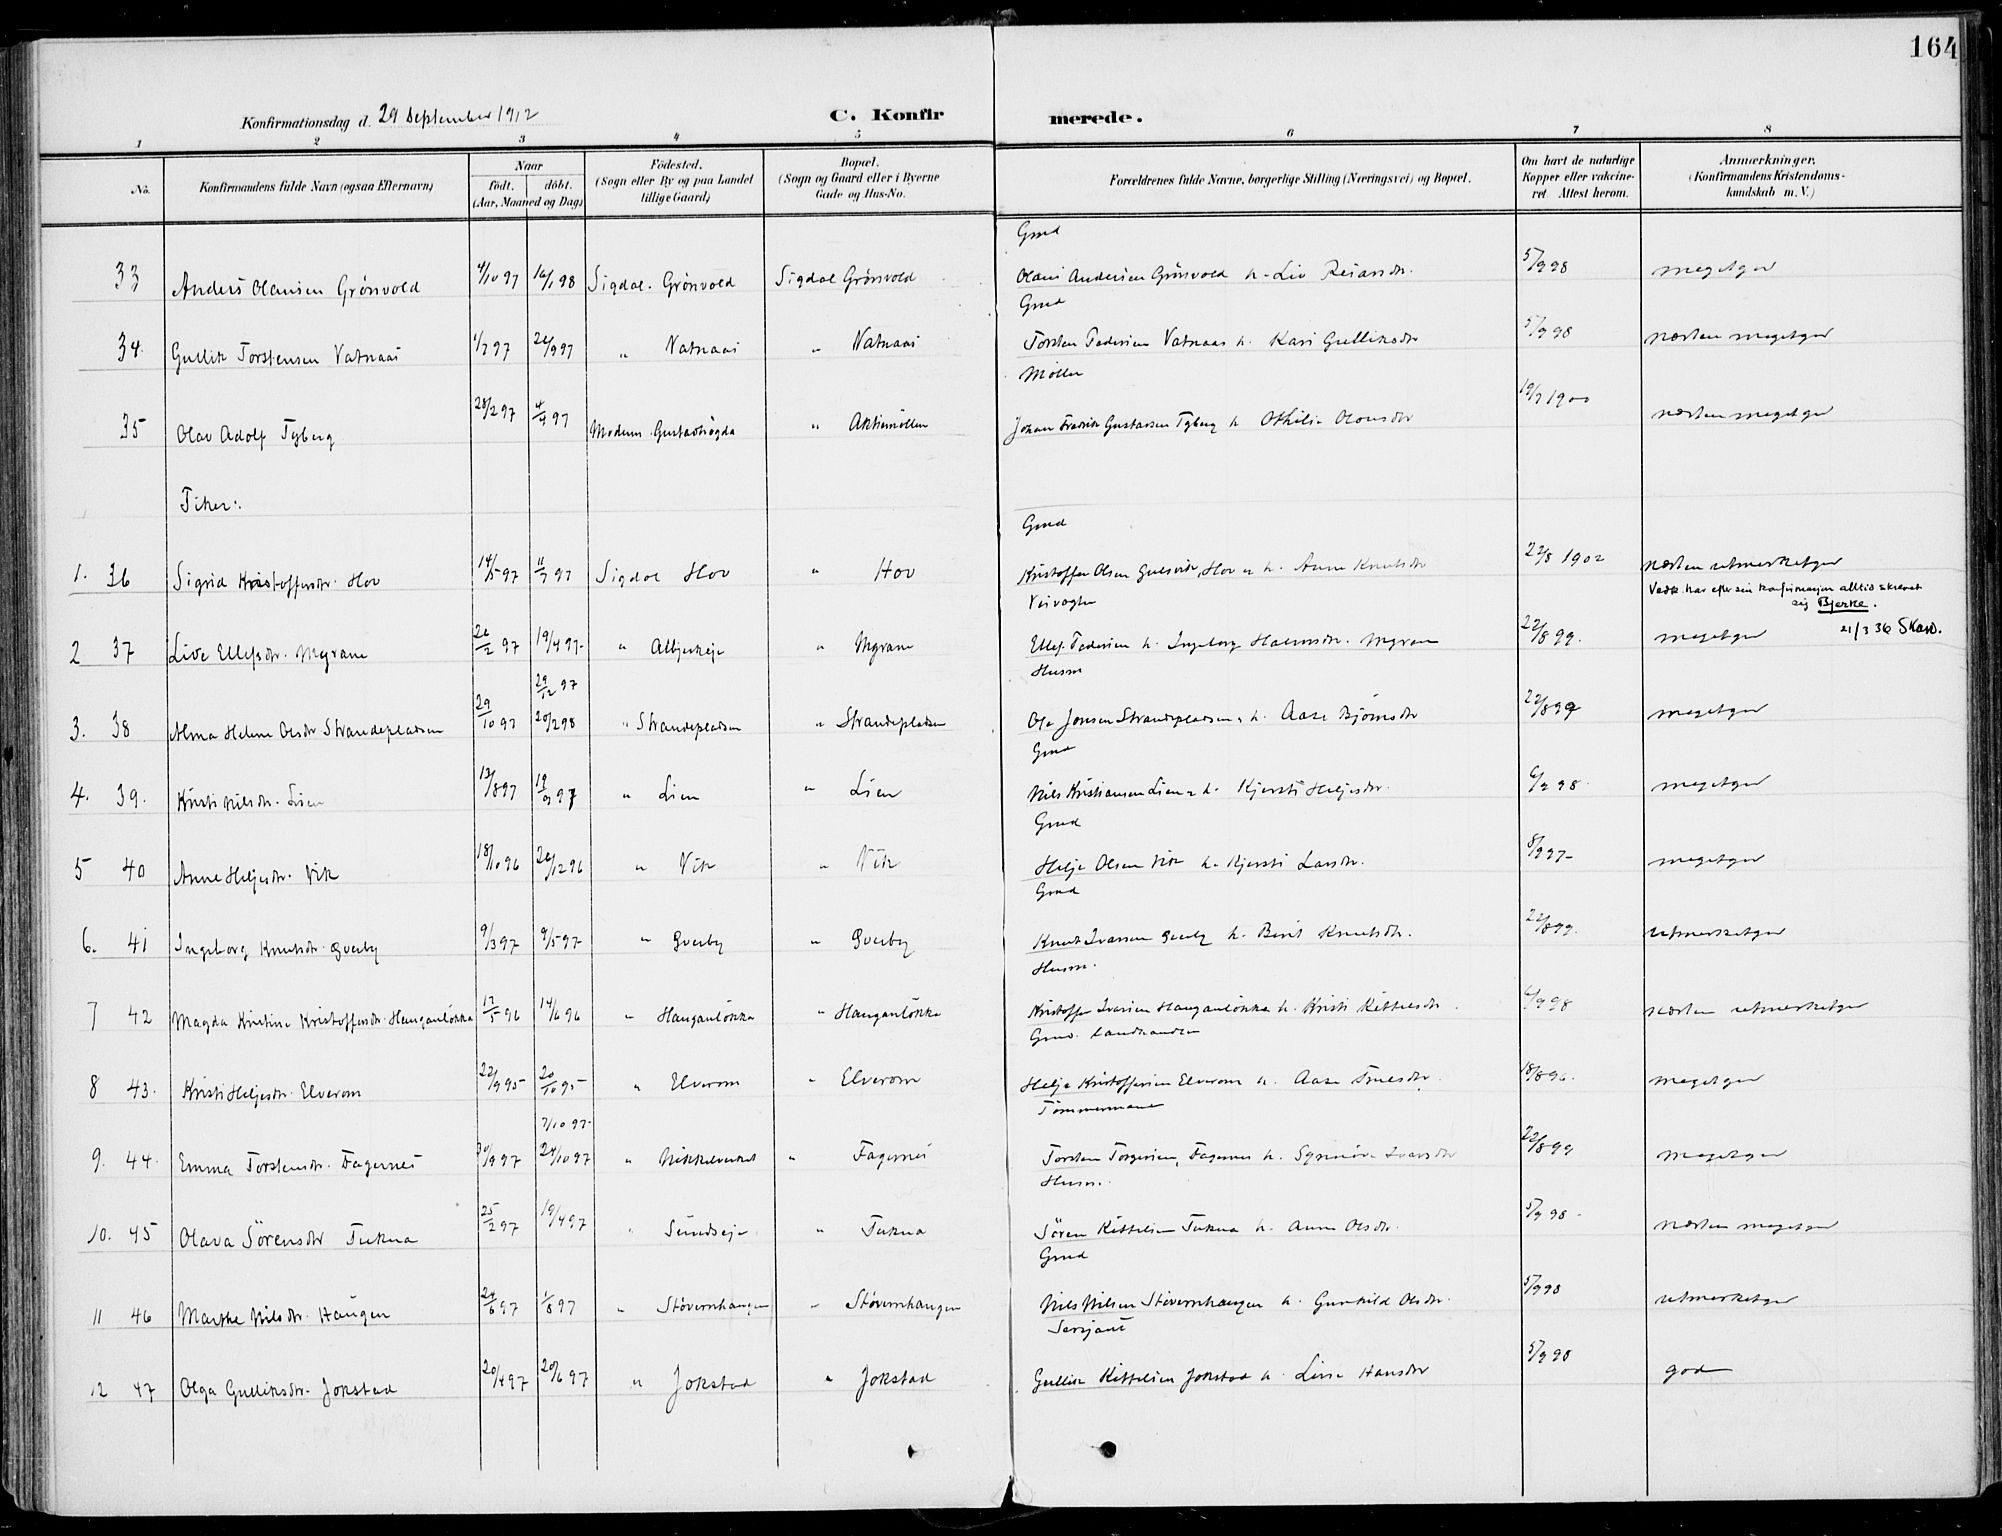 164
Konfirmationsdag d. 29 September 1912
C. Konfirmerede.
1 2 3 4 5 6 7 8
No. | Konfirmandens fulde Navn (ogsaa Efternavn) | Naar født. døbt. (Aar, Maaned og Dag) | Fødested. (Sogn eller By og paa Landet tillige Gaard) | Bopæl. (Sogn og Gaard eller i Byerne Gade og Hus-No. | Forældrenes fulde Navne, borgerlige Stilling (Næringsvei) og Bopæl. | Om havt de naturlige Kopper eller vakcineret. Attest herom. | Anmærkninger. (Konfirmandens Kristendomskundskab m. V.)
Gmd
33 Anders Olausen Grönvold 4/10 97 16/1 98 Sigdal. Grönvold Sigdal Grönvold Olaus Andersen Grönvold h. Liv 5/9 98 megetgod
Gmd
34. Gullik Torstensen Vatnaas 1/7 97 26/9 97 " Vatnaas " Vatnaas Torsten Pedersen Vatnaas h. Kari Gulliksdtr 5/9 98 næsten megetgod
Møller
35 Olav Adolf Tyberg 28/2 97 4/4 97 Modum Gustavhögda " Aktiemöllen Johan Fredrik Gustavsen Tyberg h. Othilie Olausdtr 19/7 1900 næsten megetgod
Piker:
Gmd
1. 36 Sigrid Kristoffersdtr. Hov 14/5 97 11/7 97 Sigdal Hov " Hov Kristoffer Olsen Hov h. Anne Knutsdtr 22/8 1902 næsten utmerketgod
Vedk. har efter sin konfirmasjon alltid skrevet sig Bjerke. 21/3 36 Skard.
Veivogter
2 37 Live Ellefsdtr. Myrane 26/2 97 19/4 97 " Albjerkeje " Myrane Ellef Pedersen h. Ingeborg Halvorsdtr. Myrane 22/8 99. megetgod
Husm 29/12 97
3. 38 Alma Helene Olsdtr Strandepladsen 29/10 97 20/2 98 " Strandepladsen " Strandepladsen Ole Jonsen Strandepladsen h. Aase Björnsdtr 22/8 99 megetgod
Gmd
4. 39. Kristi Nilsdtr. Lien 13/8 97 19/9 97 " Lien " Lien Nils Kristiansen Lien h. Kjersti Heljesdtr. 6/9 98. megetgod
Gmd
5 40 Anne Heljesdtr. Vik 18/10 96 26/12 96 " Vik " Vik Helje Olsen Vik h. Kjersti Larsdtr. 8/9 97 megetgod
Gmd
6. 41 Ingeborg Knutsdtr. Qverby 9/3 97 9/5 97 " Qverby " Qverby Knut Ivarsen Qverby h. Berit Knutsdtr. 22/8 99. utmerketgod
Husm.
7 42 Magda Kristine Kristoffersdtr. Hauganlökka 17/5 96 14/6 96 " Hauganlökka " Hauganlökka Kristoffer Iversen Hauganlökka h. Kristi Kittelsdtr 6/9 98 næsten utmerketgod
Gmd. Landhandler
8 43. Kristi Heljesdtr. Elverom 22/9 95 20/10 95 " Elverom " Elverom Helje Kristoffersen Elverom h. Aase Truelsdtr. 18/8 96. megetgod
Tömmermand 7/10 97
9. 44. Emma Torstensdtr. Fagernes 30/9 97 24/10 97 " Nikkelverket " Fagernes Torsten Torgersen, Fagernes h. Synnöve Ivarsdtr 22/8 99 megetgod
Husm.
10. 45 Olava Sörensdtr Tukua 25/2 97 19/4 97 " Sundseje " Tukua Sören Kittelsen Tukua h. Anne Olsdtr. 5/9 98 næsten megetgod
Gmd
11 46 Marthe Nilsdtr. Haugen 24/6 97 1/8 97 " Stövernhaugen " Stövernhaugen Nils Nilsen Stövernhaugen h. Gunhild Olsdtr. 5/9 98 utmerketgod
Sersjant
12 47 Olga Gulliksdtr. Jokstad 20/4 97 20/6 97 " Jokstad " Jokstad Gullik Kittelsen Jokstad h. Lina Hansdtr 5/9 98 god